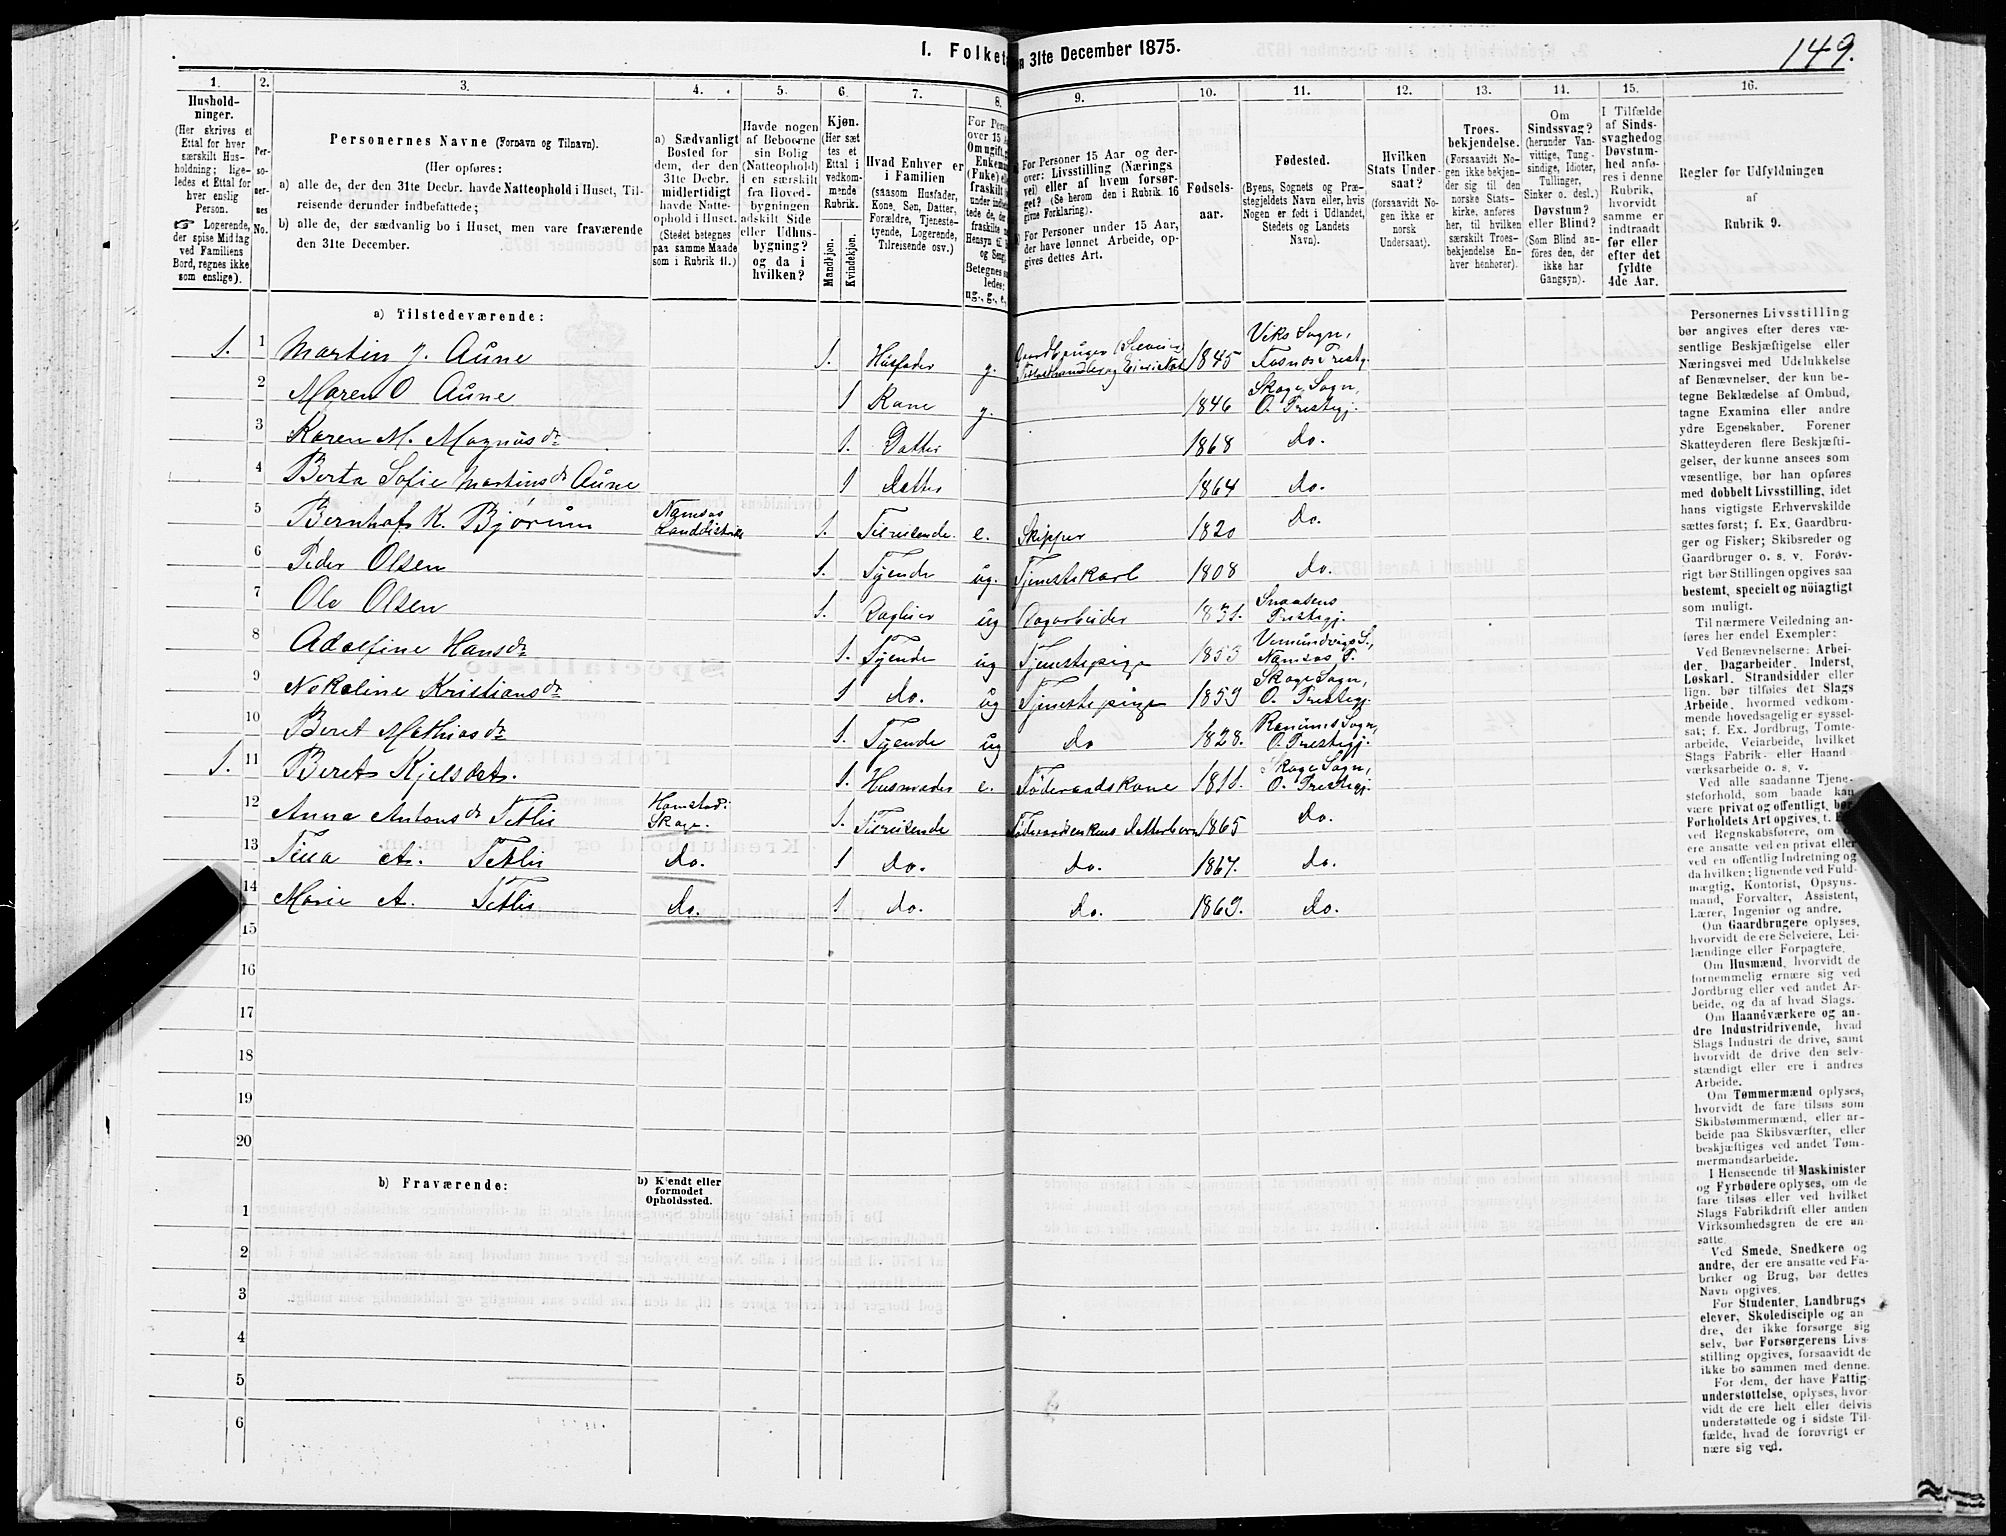 1. Folket
n 31te December 1875.
149.
1.
2.
3.
4.
5.
6.
7.
8.
9.
10.
11.
12.
13.
14.
15.
16.
Hushold-
ninger.
(Her skrives et
Ettal for hver
særskilt Hus-
holdning; lige-
ledes et Ettal for
hver enslig
Person.
☞ Logerende,
der spise Middag
ved Familiens
Bord, regnes ikke
som enslige).
Per-
so-
ner-
nes
No.
Personernes Navne (Fornavn og Tilnavn).
(Her opføres:
a) alle de, der den 31te Decbr. havde Natteophold i Huset, Til-
reisende derunder indbefattede;
b) alle de, der sædvanlig bo i Huset, men vare fraværende
den 31te December.
a) Sædvanligt
Bosted for
dem, der den
31te Decbr.
midlertidigt
havde Natte-
ophold i Huset.
(Stedet betegnes
paa samme Maade
som i Rubrik 11.)
Havde nogen
af Beboerne
sin Bolig
(Natteophold)
i en særskilt
fra Hoved-
bygningen
adskilt Side
eller Udhus-
bygning?
og da i
hvilken?
Kjøn.
(Her sæt
tes et
Ettal i
vedkom-
mende
Rubrik.
Mandkjøn.
Kvindekjøn.
Hvad Enhver er
i Familien
(saasom Husfader,
Kone, Søn, Datter,
Forældre, Tjeneste-
tyende, Logerende,
Tilreisende osv.)
For Perso
over 15 A
Om ugift, g
Enkem
(Fuke) el
fraskilt
Betegnes s
ledes:
ug., g., e.
For Personer 15 Aar og der-
over: Livsstilling (Nærings
vei) eller af hvem forsør-
get? (Se herom den i Rubrik 16
givne Forklaring).
For Personer under 15 Aar,
der have lønnet Arbeide, op-
gives dettes Art.
Fødsels-
aar.
Fødested.
(Byens, Sognets og Præ-
stegjeldets Navn eller, hvis
Nogen er født i Udlandet,
Stedets og Landets
Navn).
Hvilken
Stats Under-
saat?
(forsaavidt No-
gen ikke er
norsk
Undersaat).
Troes-
bekjendelse.
(Forsaavidt No-
gen ikke bekjen-
der sig til den
norske Stats-
kirke, anføres
her, til hvilken
særskilt Troes-
bekjendelse En-
hver henhører).
Om
Sindssvag?
(herunder Van-
vittige, Tung-
sindige, Idioter,
Tullinger,
Sinker o. desl.)
Døvstum?
eller Blind?
(Som Blind an-
føres den, der
ikke har
Gangsyn).
I Tilfælde
af Sinds-
svaghed og
Døvstum-
hed anfø-
res i denne
Rubrik,
hvorvidt
samme er
indtraadt
før eller
efter det
fyldte
4de Aar.
Regler for Udfyldningen
af
Rubrik 9.
a) Tilstedeværende:
1. 1 Martin J. Aune 1. Husfader g. 1845 Viks Sogn, Fosnes Prestgj.
2 Maren O Aune 1 Kone g. 1846 Skage Sogn, O. Prestegj.
3 Karen M. Magnusdr 1. Datter 1868 do.
4 Berta Sofie Martinsdr Aune 1 datter 1864 do.
5 Bernhof K. Bjørum Namsos Landdistrikt 1. Tilreisende. e. Skipper 1820 do.
6 Peder Olsen 1. Tyende ug. Tjenestekarl 1808 do.
7 Ole Olsen 1. ug Dagarbeider 1831. Snaasens Prestegj.
8 Adolfine Hansdr 1. Tyende ug Tjenestepige 1853 Vemundvigs S., Namsos P.
9 Nekoline Kristiansdr 1 do. ug Tjenestepige 1859 Skage Sogn, O. Prestegj.
10 Beret Mathiasdr 1. Tyende ug do 1828. Ranums Sogn, O. Prestegj.
1. 11 Beret Kjelsdat. 1. Husmoder e. Føderaadskone 1811. Skage Sogn, O. Prestegj.
12 Anna Antonsdr Tetlie Skage. 1. Tilreisende 1865 do.
13 Tina A. Tetlie do. 1 do. do. 1867. do.
14 Marie A. Tetlie do. 1 do. do. 1869. do.
15
16
17
18
19
20
b) Fraværende:
b) Kjendt eller
formodet
Opholdssted.
1
2
3
4
5
6
Personernes Livsstilling
bør angives efter deres væ-
sentlige Beskjæftigelse eller
Næringsvei med Udelukkelse
af Benævnelser, der kun be-
tegne Beklædelse af Ombud,
tagne Examina eller andre
ydre Egenskaber. Forener
Skatteyderen flere Beskjæfti-
gelser, der kunne ansees som
væsentlige, bør han opføres
med dobbelt Livsstilling, idet
hans vigtigste Erhvervskilde
sættes først; f. Ex. Gaardbru-
ger og Fisker; Skibsreder og
Gaardbruger o. s. v. Forøv-
rigt bør Stillingen opgives saa
bestemt, specielt og nøiagtigt
som muligt.
Til nærmere Veiledning an-
føres her endel Exempler:
Ved Benævnelserne: Arbei-
der, Dagarbeider, Inderst,
Løskarl, Strandsidder eller
lign. bør tilføies det Slags
Arbeide, hvormed vedkom-
mende hovedsagelig er syssel-
sat; f. Ex. Jordbrug, Tomte-
arbeide, Veiarbeide, hvilket
Slags Fabrik- eller Haand-
værksarbeide o. s. v.
Ved alle saadanne Tjene-
steforhold, som baade kan
være privat og offentligt, bør
Forholdets Art opgives, t.
ved Regnskabsførere, om
ere ansatte ved en privat eller
ved en offentlig Indretning og
da hvilken; lignende ved Fuld-
mægtig, Kontorist, Opsyns-
mand, Forvalter, Assistent,
Lærer, Ingeniør og andre.
Om Gaardbrugere oplyses,
hvorvidt de ere Selveiere, Lei-
lændinge eller Forpagtere.
Om Husmænd, hvorvidt de
fornemmelig ernære sig ved
Jordbrug eller ved andet Ar-
beide, og da af hvad Slags.
Om Haandværkere og an-
dre Industridrivende, hvad
Slags Industri de drive, samt
hvorvidt de drive den selv-
stændigt eller ere i andres
Arbeide.
Om Tømmermænd oplyses,
hvorvidt de fare tilsøs som
Skibstømmermænd, eller ar-
beide paa Skibsværfter, eller
beskjæftiges ved andet Tøm-
mermandsarbeide.
I Henseende til Maskinister
og Fyrbødere oplyses, om de
fare tilsøs eller ved hvilket
Slags Fabrikdrift eller anden
Virksomhedsgren de ere an-
satte.
Ved Smede, Snedkere og
andre, der ere ansatte ved Fa-
briker og Brug, bør dettes
Navn opgives.
For Studenter, Landbrugs
elever, Skoledisciple og an
dre, der ikke forsørge sig
selv, bør Forsørgerens Livs-
stilling opgives, forsaavidt de
ikke bo sammen med denne.
For dem, der have Fattig-
understøttelse, oplyses, hvor
vidt de ere helt eller delvis
understøttede og i sidste Til-
fælde, hvad de forøvrigt er
nære sig ved.